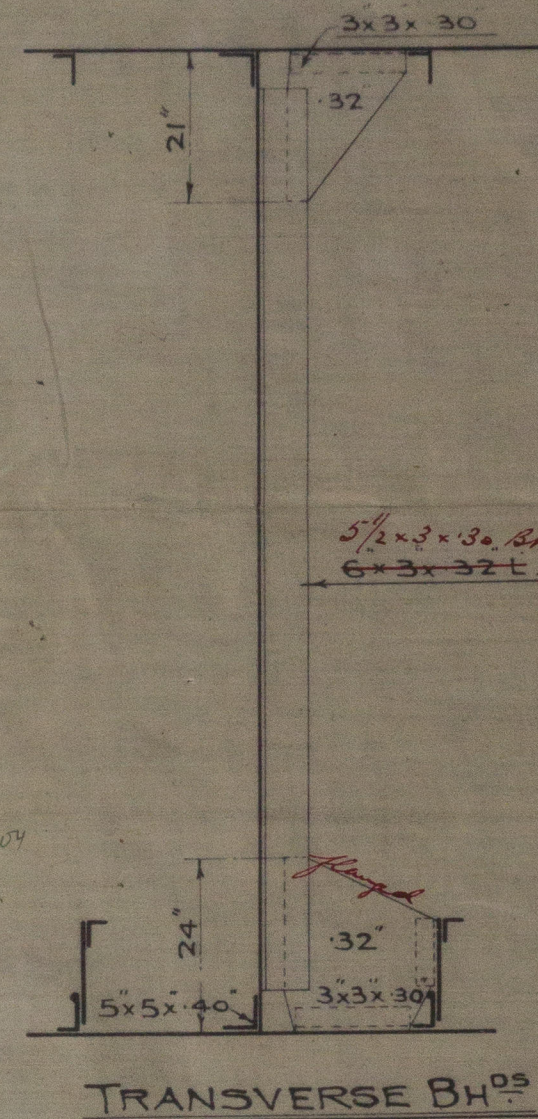 3" x 3" x .30"
.32"
21"
5 1/2 x 3 x .30
6" x 3" x .32" L
Flanged
24"
.32"
5" x 5" x .40"
3" x 3" x .30"
TRANSVERSE BHDS.